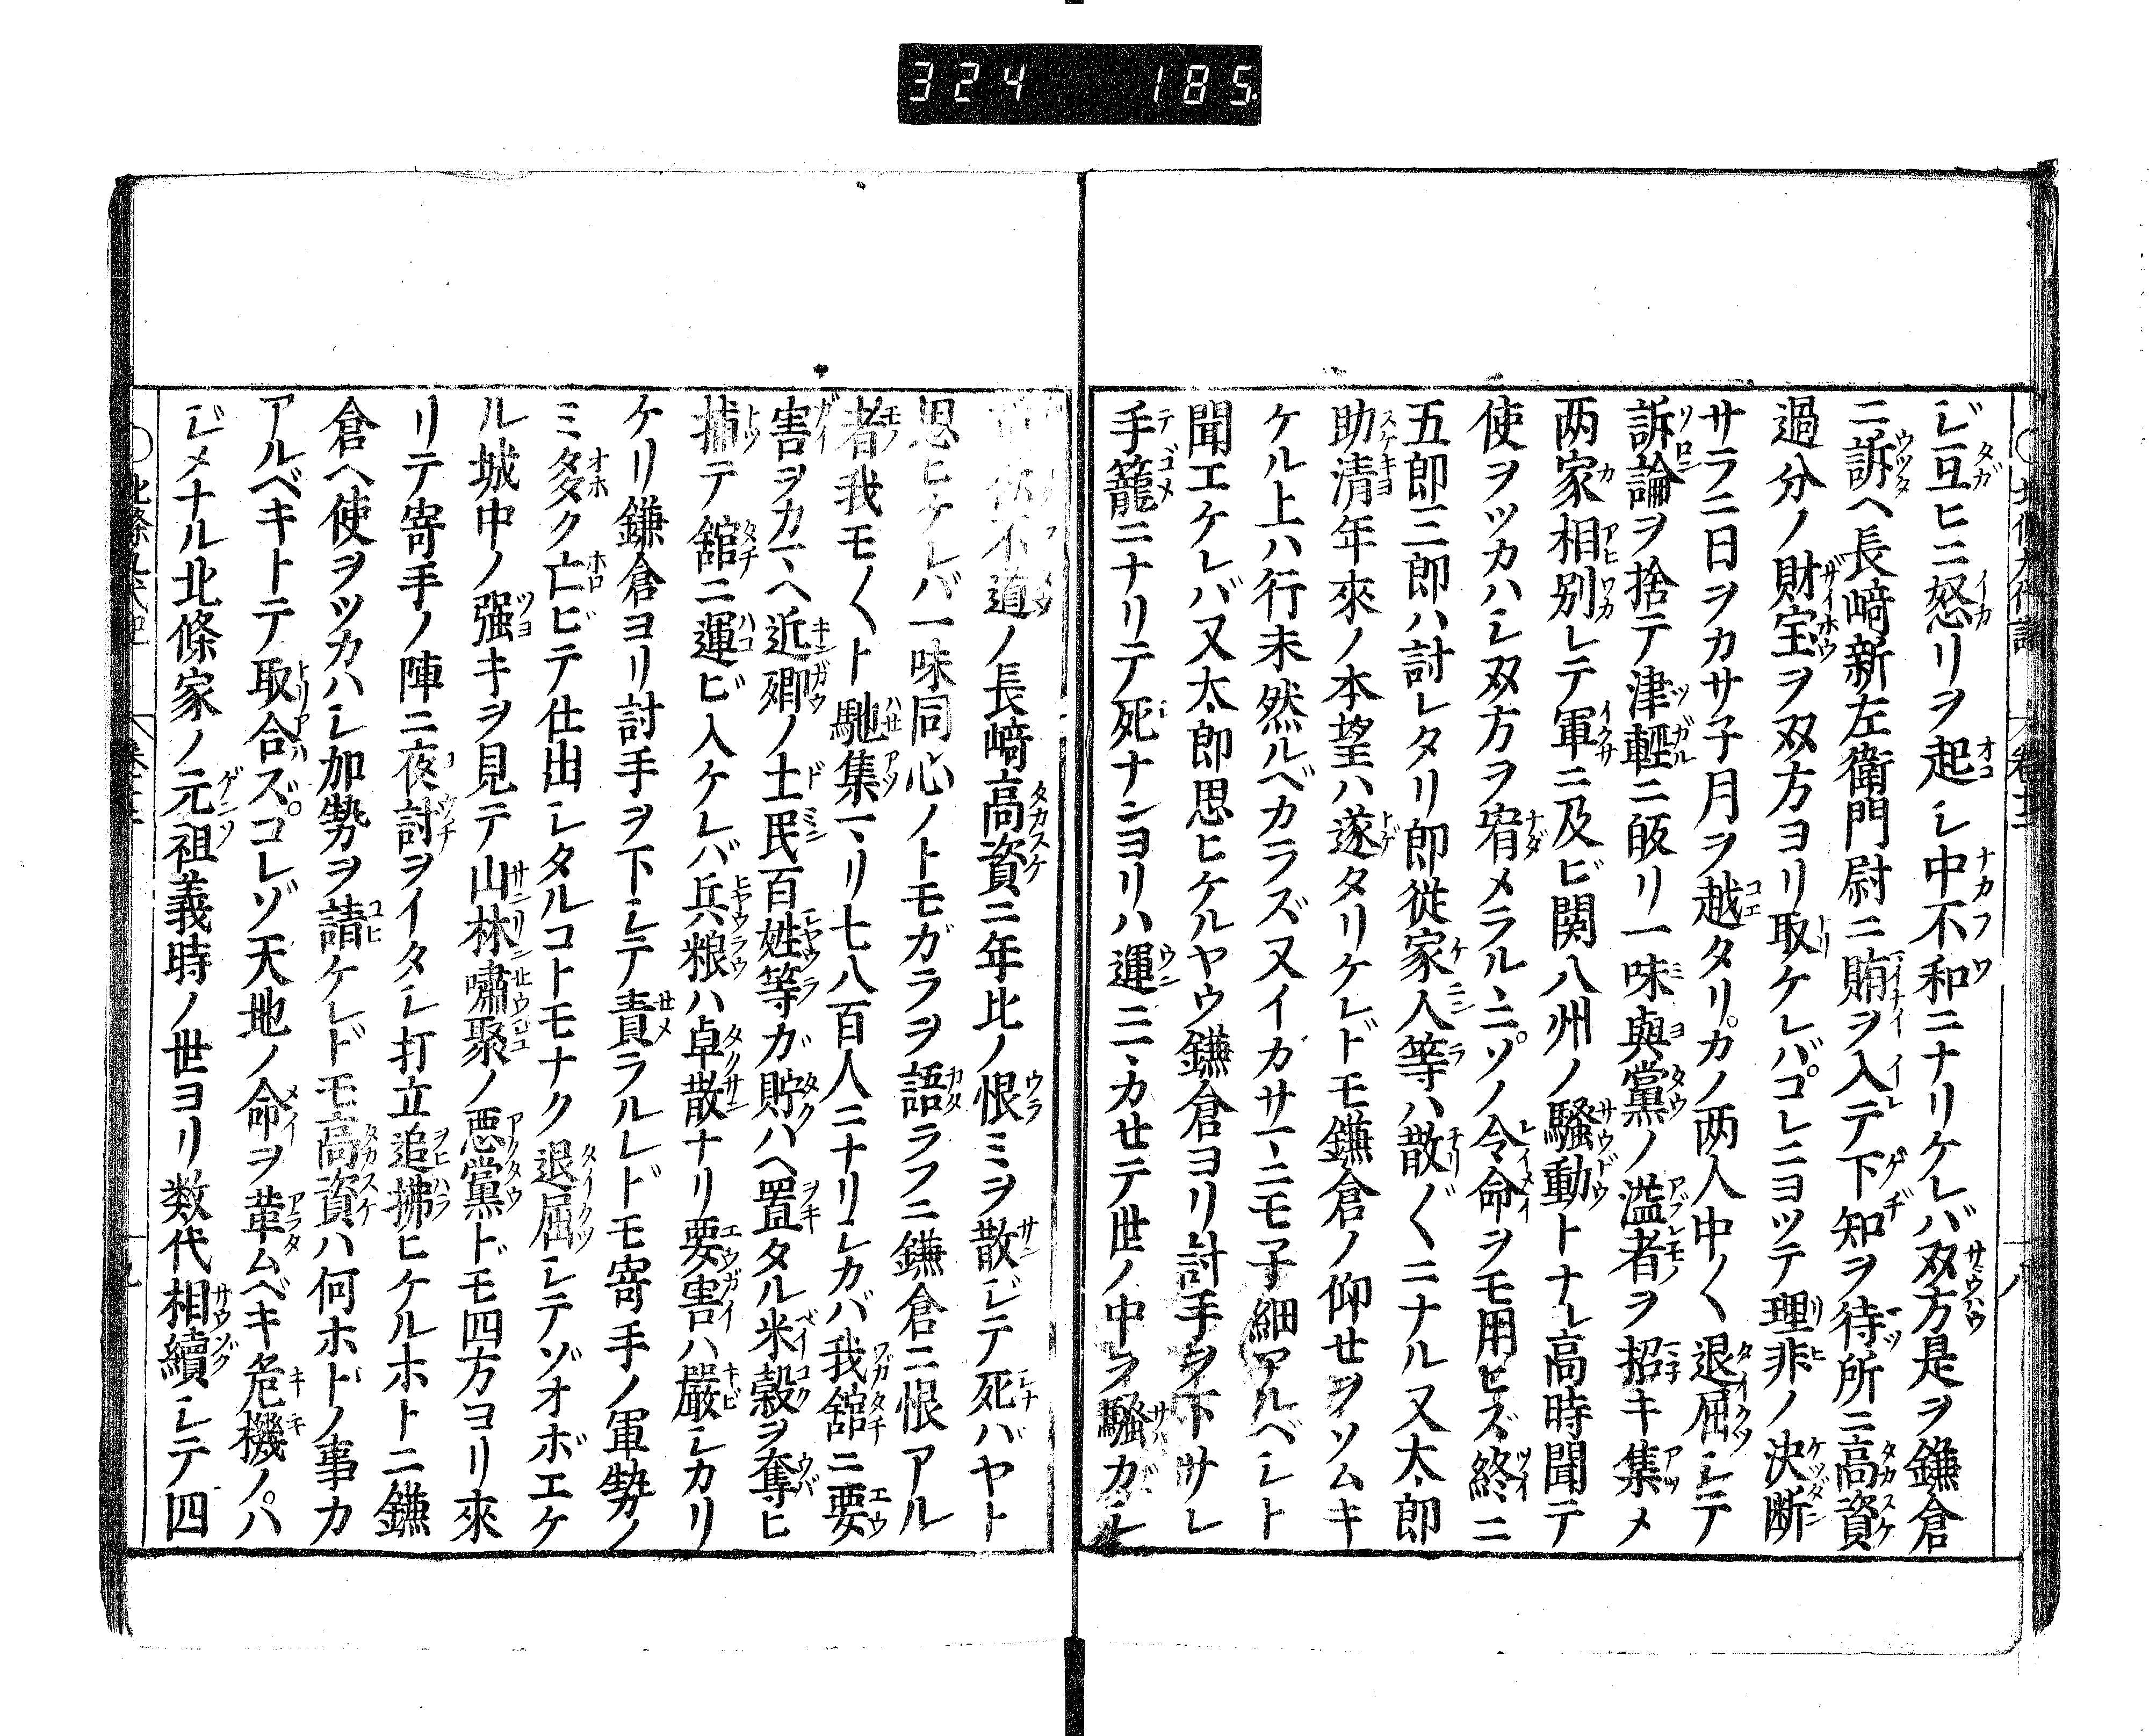 324 185
ジ互ヒニ怒リヲ起シ中不和ニナリケレバ双方是ヲ鎌倉
ニ訴ヘ長﨑新左衛門尉ニ賄ヲ入テ下知ヲ待所ニ高資
過分ノ財宝ヲ双方ヨリ取ケレバコレニヨツテ理非ノ決断
サラニ日ヲカサ子月ヲ越タリカノ両人中〱退屈シテ
訴論ヲ捨テ津輕ニ皈リ一味與黨ノ濫者ヲ招キ集メ
両家相別レテ軍ニ及ビ関八州ノ騒動トナル高時聞テ
使ヲツカハシ双方ヲ宥メラルヽニソノ令命ヲモ用ヒズ終ニ
五郎三郎ハ討レタリ郎従家人等ハ散〲ニナル又太郎
助清年來ノ本望ハ遂タリケレドモ鎌倉ノ仰セヲソムキ
ケル上ハ行末然ルベカラズ又イカサマニモ子細アルベシト
聞エケレバ又太郎思ヒケルヤウ鎌倉ヨリ討手ヲ下サレ
手籠ニナリテ死ナンヨリハ運ニマカセテ世ノ中ヲ騒カシ
不道ノ長﨑高資ニ年比ノ恨ミヲ散ジテ死ハヤト
思ヒケレバ一味同心ノトモガラヲ語ラフニ鎌倉ニ恨アル
者我モ〱ト馳集マリ七八百人ニナリシカバ我舘ニ要
害ヲカマヘ近郷ノ土民百姓等ガ貯ハヘ置タル米穀ヲ奪ヒ
捕テ舘ニ運ビ入ケレバ兵粮ハ卓散ナリ要害ハ嚴シカリ
ケリ鎌倉ヨリ討手ヲ下シテ責ラルレドモ寄手ノ軍勢ノ
ミ多ク亡ビテ仕出シタルコトモナク退屈シテゾオボエケ
ル城中ノ强キヲ見テ山林嘯聚ノ悪黨ドモ四方ヨリ來
リテ寄手ノ陣ニ夜討ヲイタシ打立追拂ヒケルホトニ鎌
倉ヘ使ヲツカハシ加勢ヲ請ケレドモ高資ハ何ホドノ事カ
アルベキトテ取合ズコレゾ天地ノ命ヲ革ムベキ危機ノハ
ジメナル北條家ノ元祖義時ノ世ヨリ数代相續シテ四